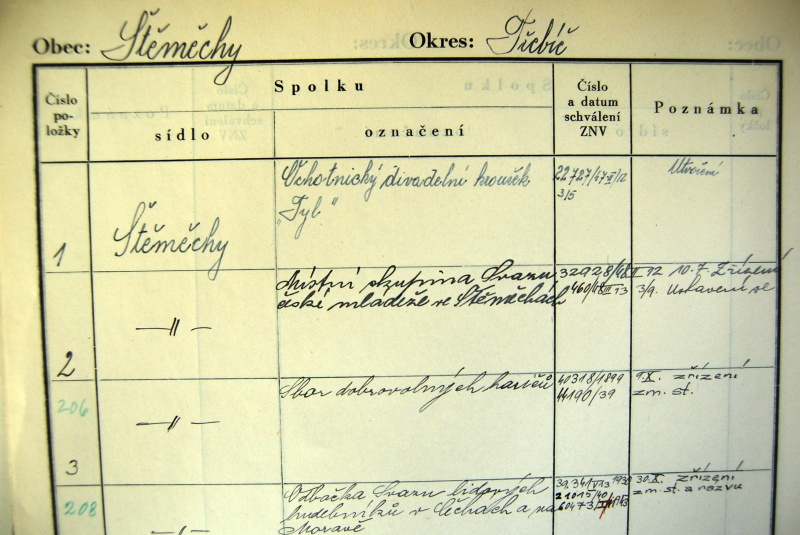 Obec: Štěměchy Okres: Třebíč
Číslo po- ložky
Spolku
sídlo
označení
Číslo a datum schválení ZNV
Poznámka
1
Štěměchy
Ochotnický divadelní kroužek
„Tyl"
22727/47
3/5
Utvoření
2
—"—
Místní skupina Svazu
české mládeže ve Štěměchách
32928/48 II 12
10.7. Zřízení
3/9. Ustavení se
206
3
—"—
Sbor dobrovolných hasičů
40318/1899
44190/39
9.X. zřízení
zm. st.
208
Odbočka Svazu lidových
hudebníků v Čechách a na
Moravě
21015/40
30.X. zřízení
zm. st. a názvu